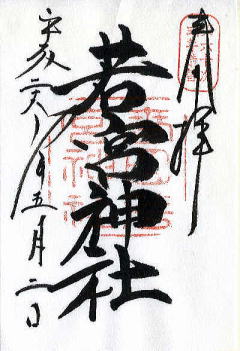 奉拝
若宮神社
平成二六年五月二日